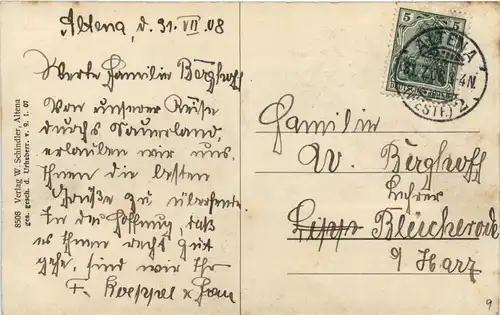 Altena, d. 31. VII 08
Werte Familie Berghoff
Von unserer Reise
durchs Sauerland,
erlauben wir uns,
Ihnen die besten
Grüße zu übersenden.
In der Hoffnung, daß
es Ihnen recht gut
gehe, sind wir Ihr
F. Koeppel & Frau
8508 Verlag W. Schindler, Altena
ges. gesch. Urheberr. v. 9. 1. 07
5 5
ALTENA
31.7.08. 3-4N.
(WESTF.) 2
Familie
W. Berghoff
Lehrer
Lipp Bleicherode
a/ Harz
9